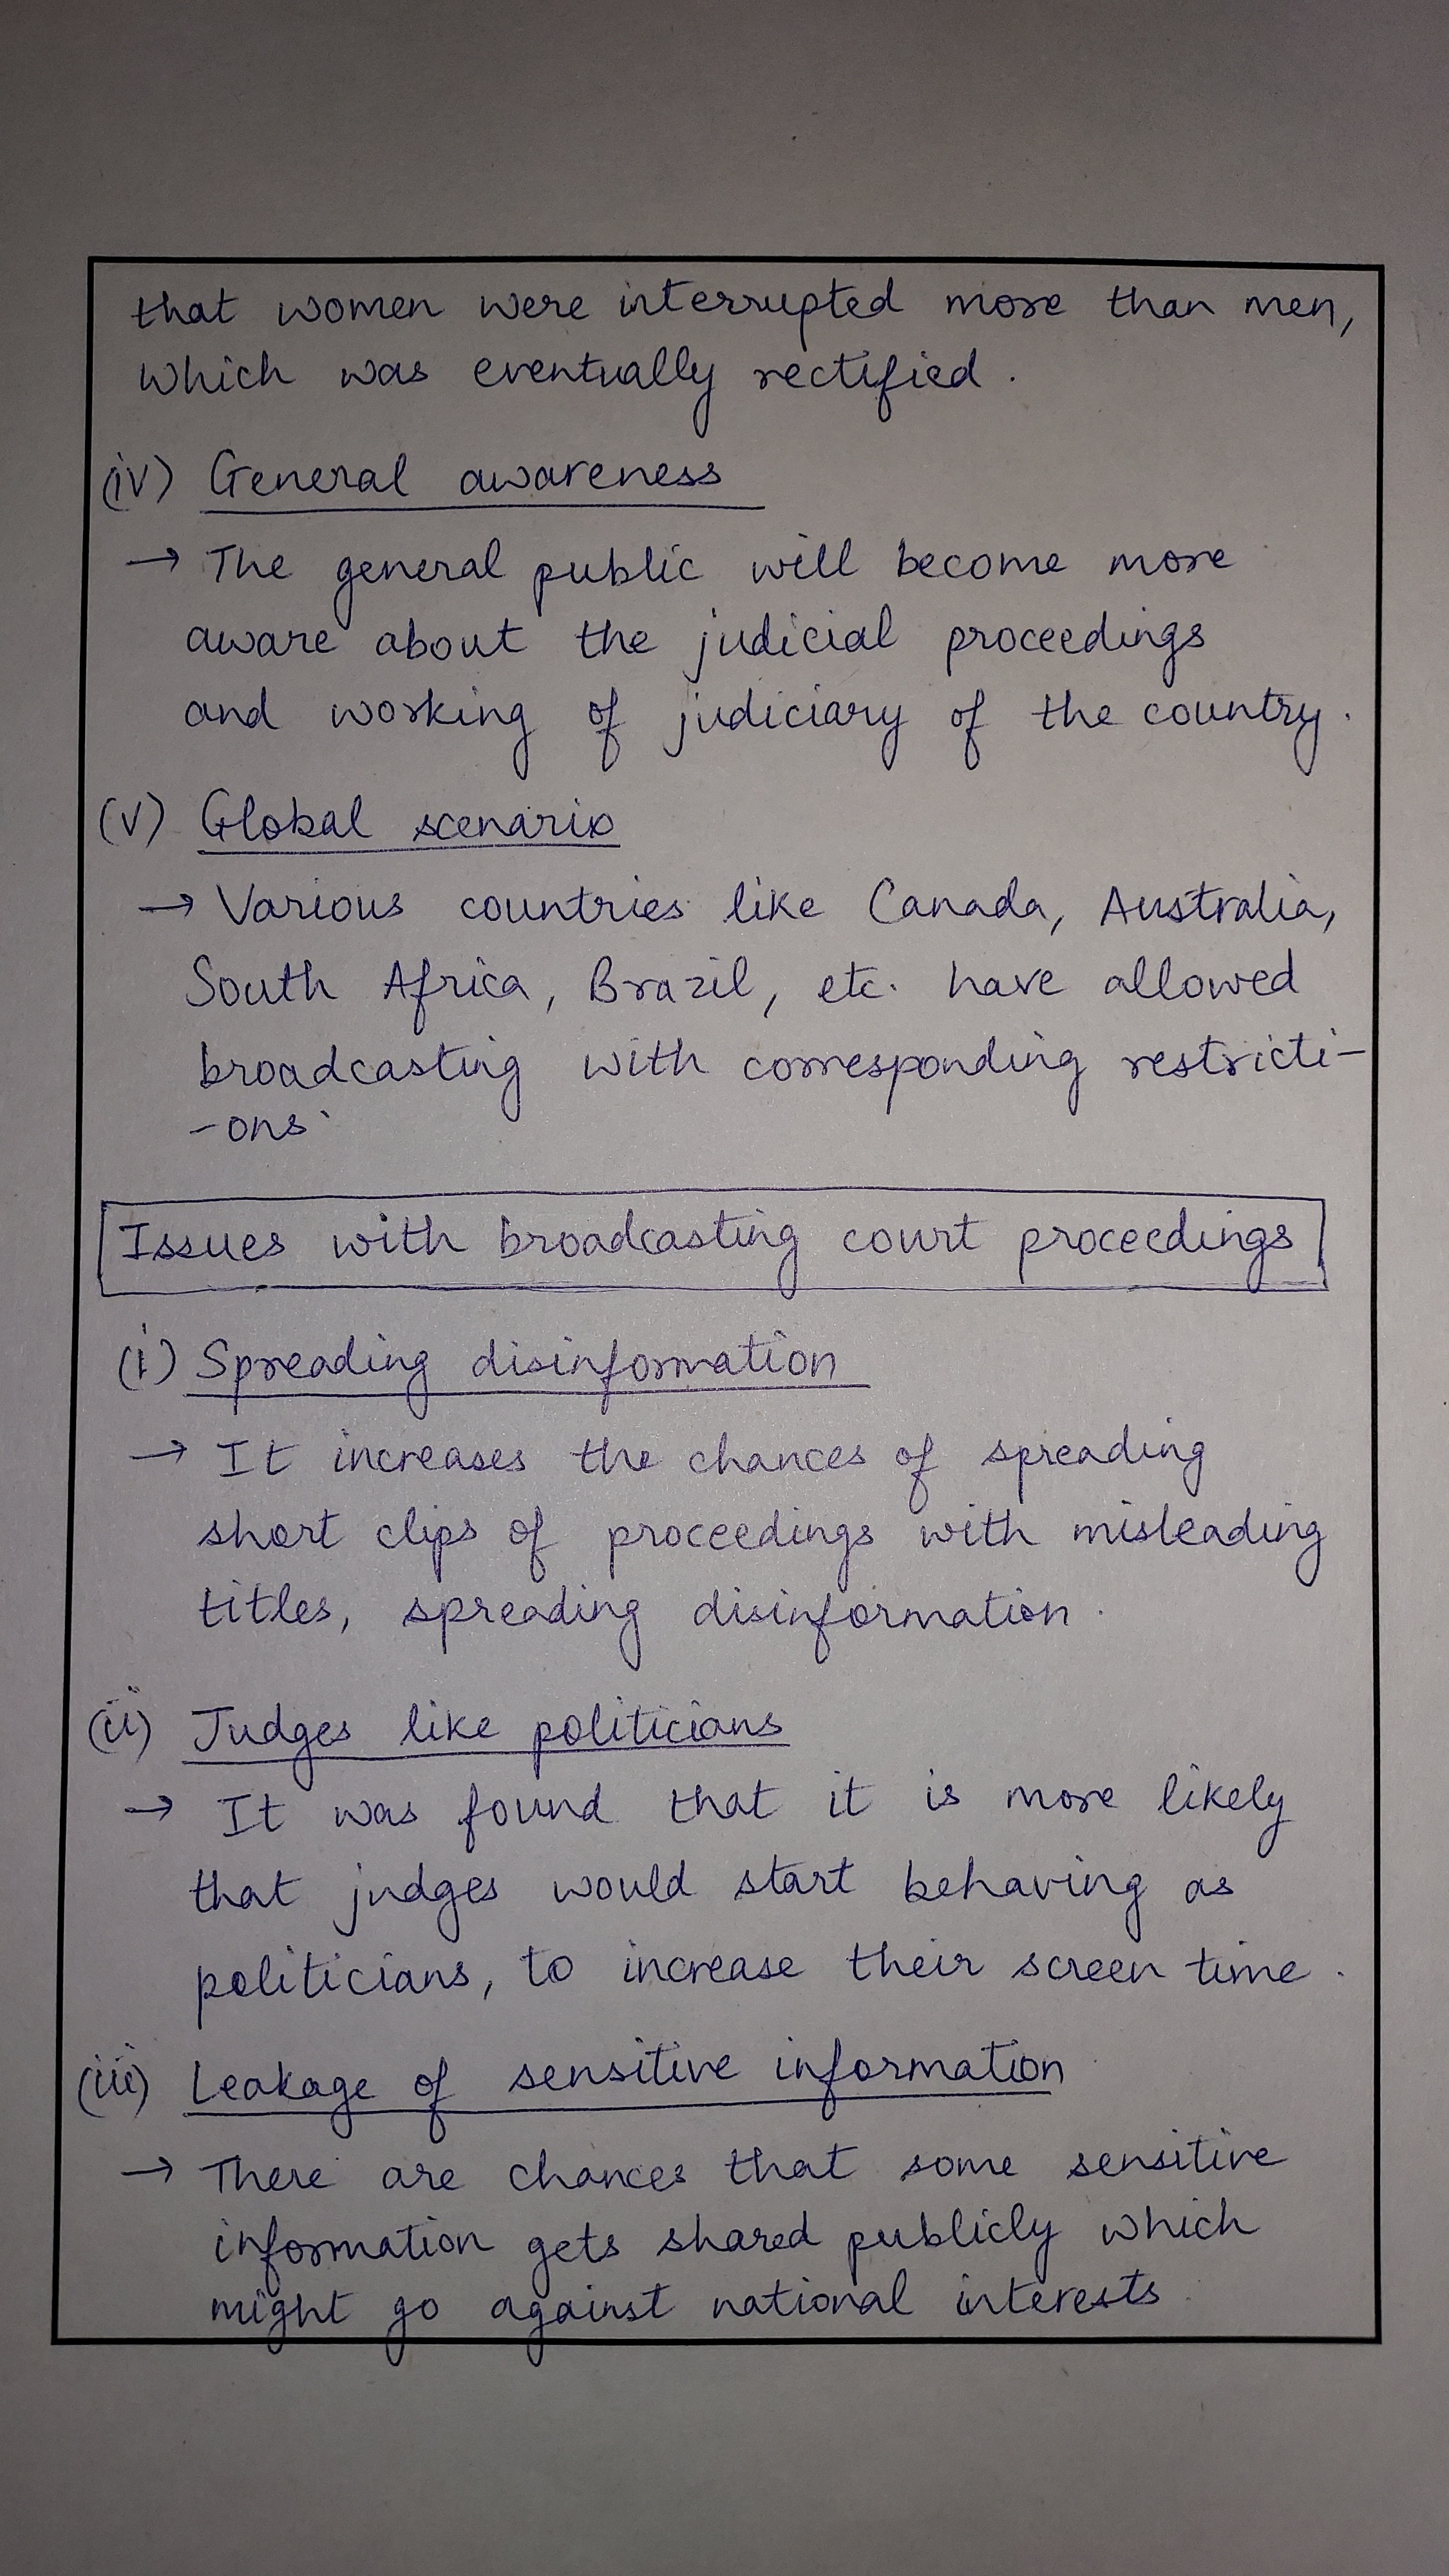 that women were interrupted more than men,
which was eventually rectified.
(iv) General awareness
→ The general public will become more
aware about the judicial proceedings
and working of judiciary of the country.
(v) Global scenario
→ Various countries like Canada, Australia,
South Africa, Brazil, etc. have allowed
broadcasting with corresponding restricti-
-ons.
Issues with broadcasting court proceedings
(i) Spreading disinformation
→ It increases the chances of spreading
short clips of proceedings with misleading
titles, spreading disinformation.
(ii) Judges like politicians
→ It was found that it is more likely
that judges would start behaving as
politicians, to increase their screen time.
(iii) Leakage of sensitive information
→ There are chances that some sensitive
information gets shared publicly which
might go against national interests.